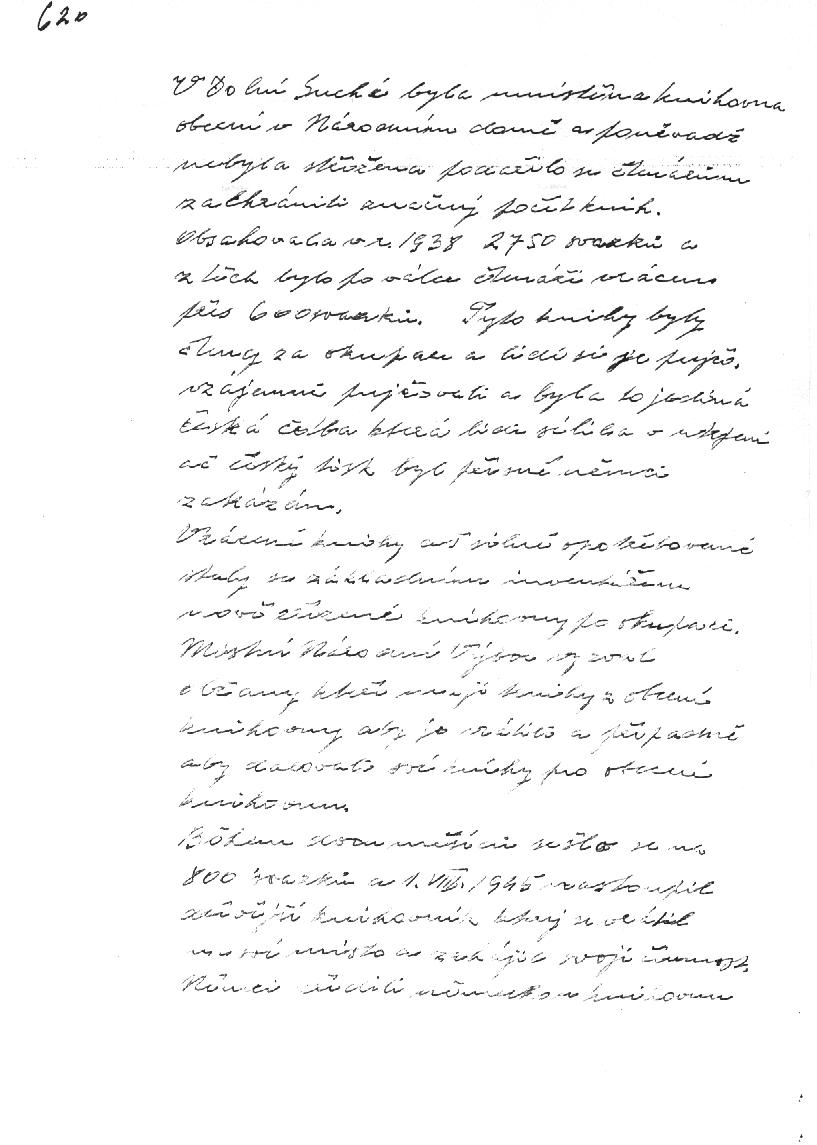 620
V Dolní Suché byla umístěna knihovna
obecní v Národním domě a poněvadž
nebyla střežena podařilo se čtenářům
zachrániti značný počet knih.
Obsahovala v r. 1938 2750 svazků a
z těch bylo po válce čtenáři vráceno
přes 600 svazků. Tyto knihy byly
čteny za okupace a lidé si je
vzájemně pujčovali a byla to jediná
česká četba která lidi sílila v utrpení
ač český tisk byl přísně němci
zakázán.
Vrácené knihy ač silně opotřebované
staly se základním inventářem
nově zřízené knihovny po okupaci.
Místní Národní Výbor vyzval
občany kteří mají knihy z obecní
knihovny aby je vrátili a případně
aby darovali své knihy pro obecní
knihovnu.
Během dvou měsíců sešlo se na
800 svazků a 1. VIII. 1945 nastoupil
dřívější knihovník který se vrátil
na své místo a zahájil svoji činnost.
Němci zřídili německou knihovnu